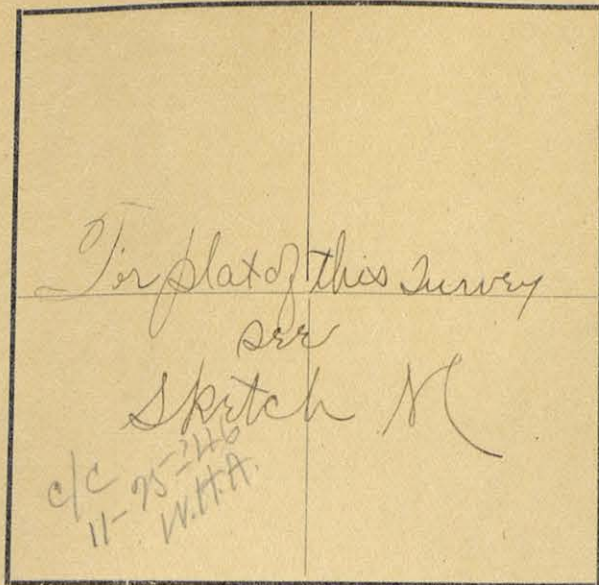 For plat of this Survey
see
Sketch M
c/c
11-25-246
W.H.A.